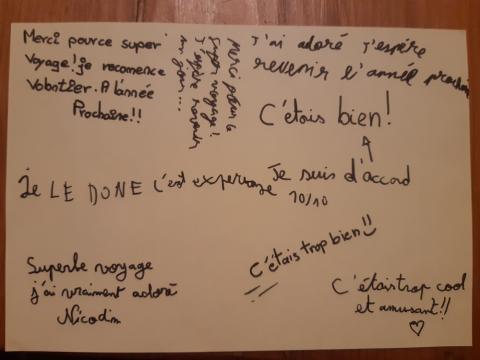 Merci pource super
Voyage! je recomence
Vobotier. A l'année
Prochaine!!
Merci pour le
super voyage!
J'espère revenir
un jour...
J'ai adoré J'espére
revenir l'année prochain
C'étais bien!
Je suis d'accord
10/10
Je LE DONE C'est
Superbe voyage
j'ai vraiment adoré
Nicodim
C'étais trop bien!!
C'étais trop cool
et amusant!!